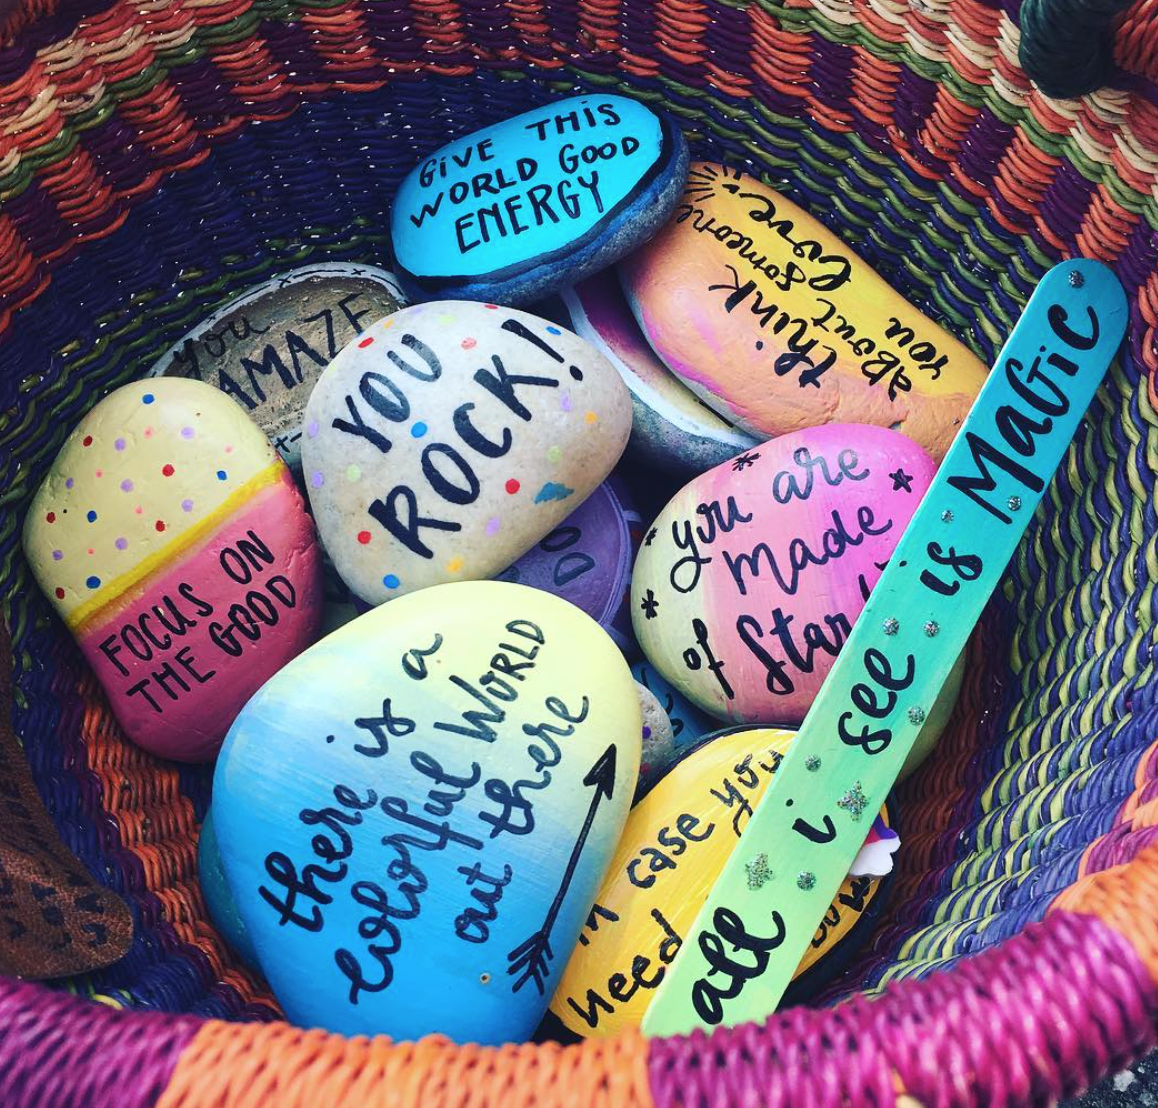 GIVE THIS
WORLD GOOD
ENERGY
think
about someone
you love
you
AMAZE
YOU
ROCK!
FOCUS ON
THE GOOD
you are
made
of
DO
there is a
colorful WORLD
out there
in case you
need
all i see is MaGic